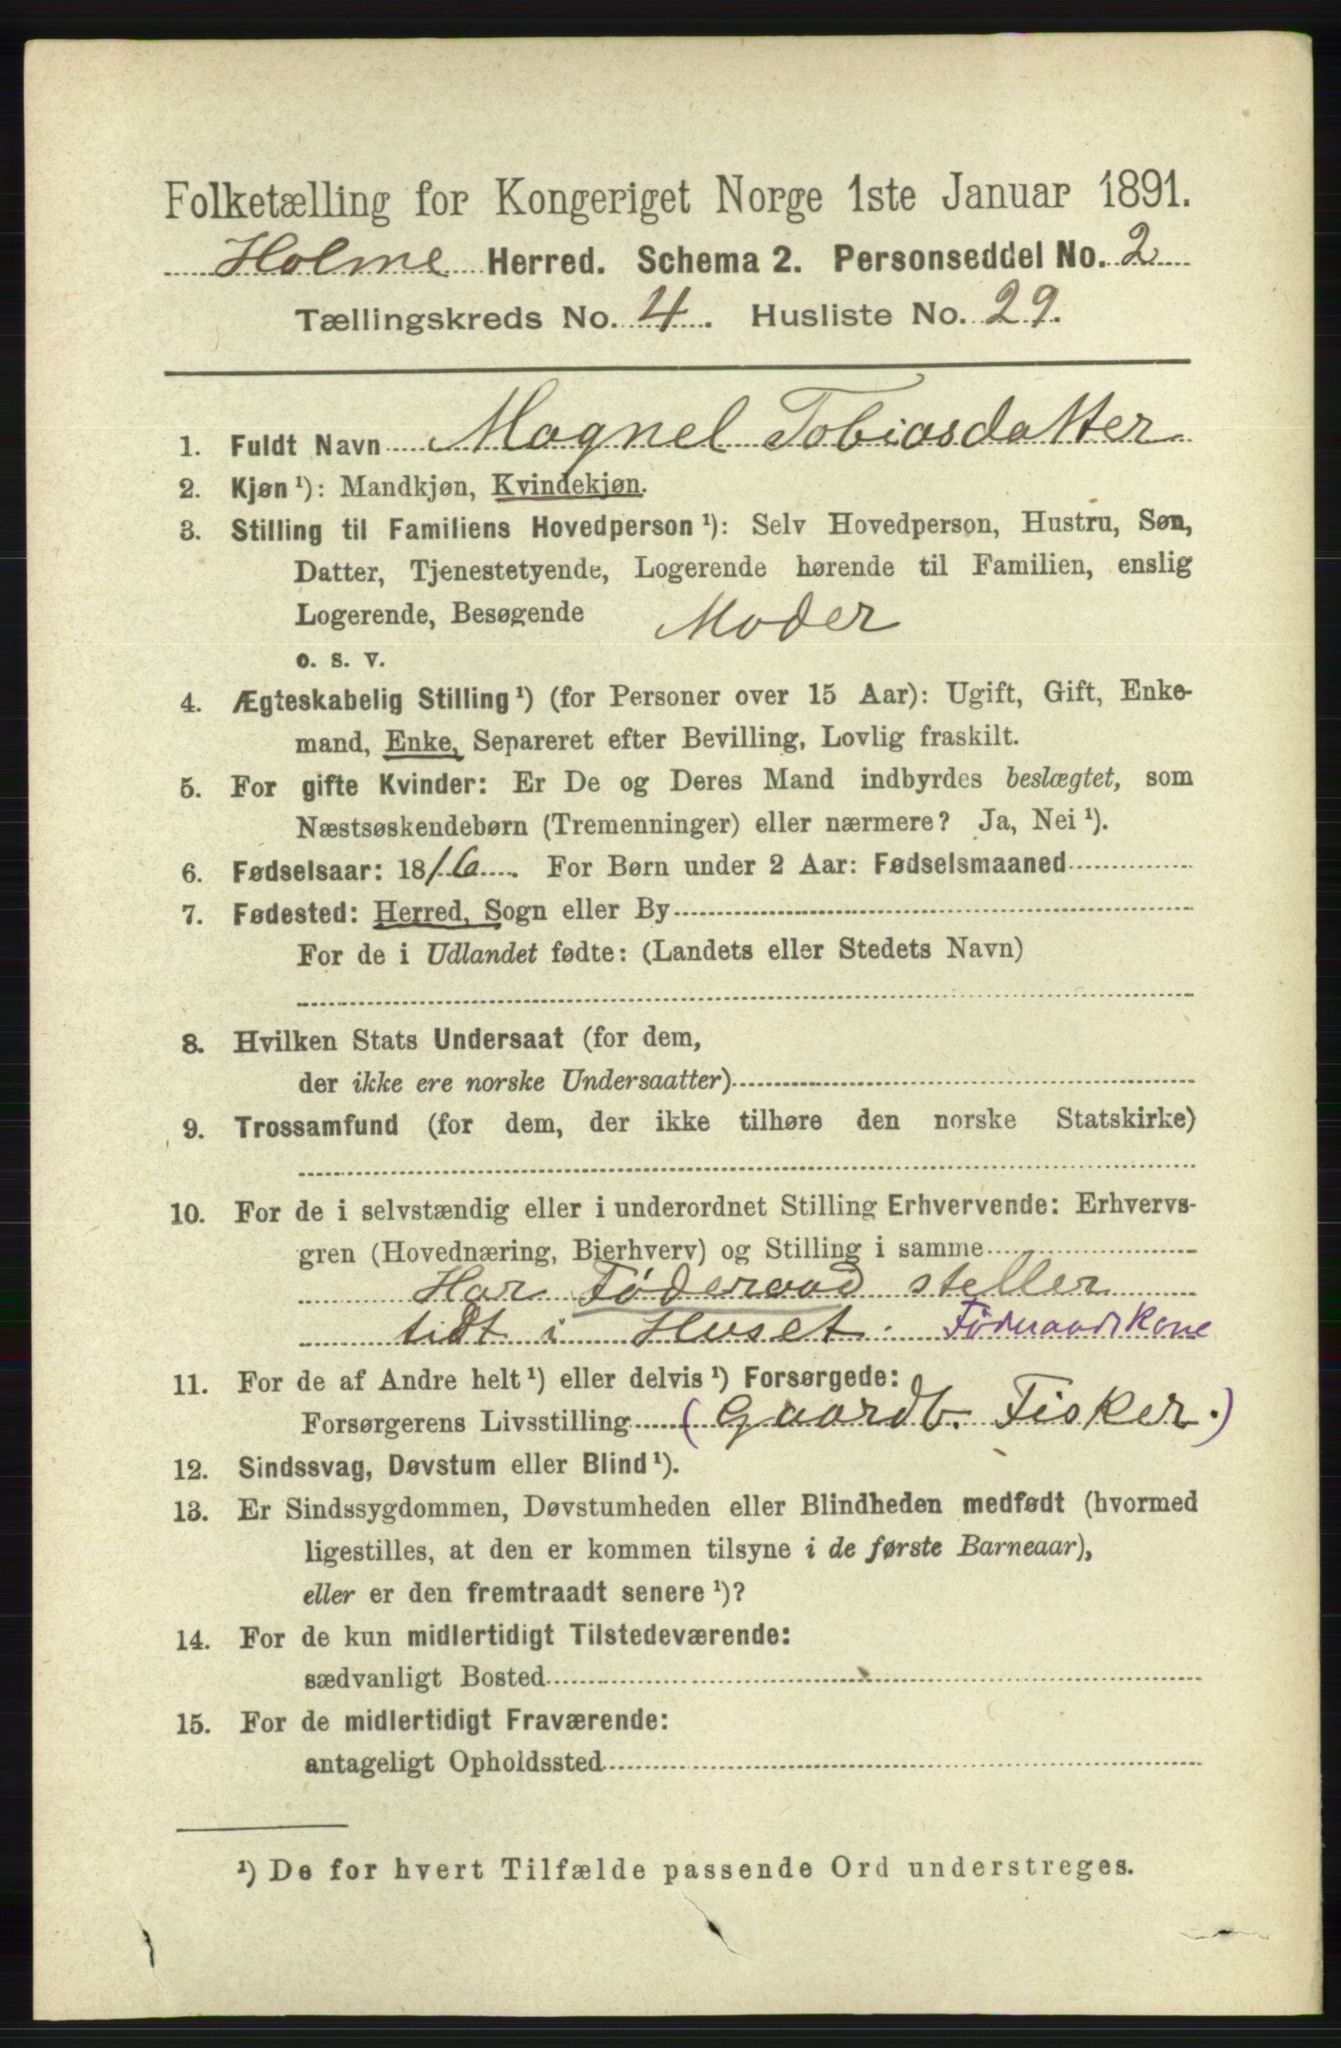 Folketælling for Kongeriget Norge 1ste Januar 1891.
Holme Herred. Schema 2. Personseddel No. 2
Tællingskreds No. 4. Husliste No. 29.
1. Fuldt Navn Magnel Tobiasdatter
2. Kjøn ¹): Mandkjøn, Kvindekjøn.
3. Stilling til Familiens Hovedperson ¹): Selv Hovedperson, Hustru, Søn,
Datter, Tjenestetyende, Logerende hørende til Familien, enslig
Logerende, Besøgende Moder
o. s. v.
4. Ægteskabelig Stilling ¹) (for Personer over 15 Aar): Ugift, Gift, Enke-
mand, Enke, Separeret efter Bevilling, Lovlig fraskilt.
5. For gifte Kvinder: Er De og Deres Mand indbyrdes beslægtet, som
Næstsøskendebørn (Tremenninger) eller nærmere? Ja, Nei ¹).
6. Fødselsaar: 1816. For Børn under 2 Aar: Fødselsmaaned
7. Fødested: Herred, Sogn eller By
For de i Udlandet fødte: (Landets eller Stedets Navn)
8. Hvilken Stats Undersaat (for dem,
der ikke ere norske Undersaatter)
9. Trossamfund (for dem, der ikke tilhøre den norske Statskirke)
10. For de i selvstændig eller i underordnet Stilling Erhvervende: Erhvervs-
gren (Hovednæring, Bierhverv) og Stilling i samme
Har Føderaad steller
lidt i Huset. Føderaadskone
11. For de af Andre helt ¹) eller delvis ¹) Forsørgede:
Forsørgerens Livsstilling (Gaardb. Fisker.)
12. Sindssvag, Døvstum eller Blind ¹).
13. Er Sindssygdommen, Døvstumheden eller Blindheden medfødt (hvormed
ligestilles, at den er kommen tilsyne i de første Barneaar),
eller er den fremtraadt senere ¹)?
14. For de kun midlertidigt Tilstedeværende:
sædvanligt Bosted
15. For de midlertidigt Fraværende:
antageligt Opholdssted
¹) De for hvert Tilfælde passende Ord understreges.